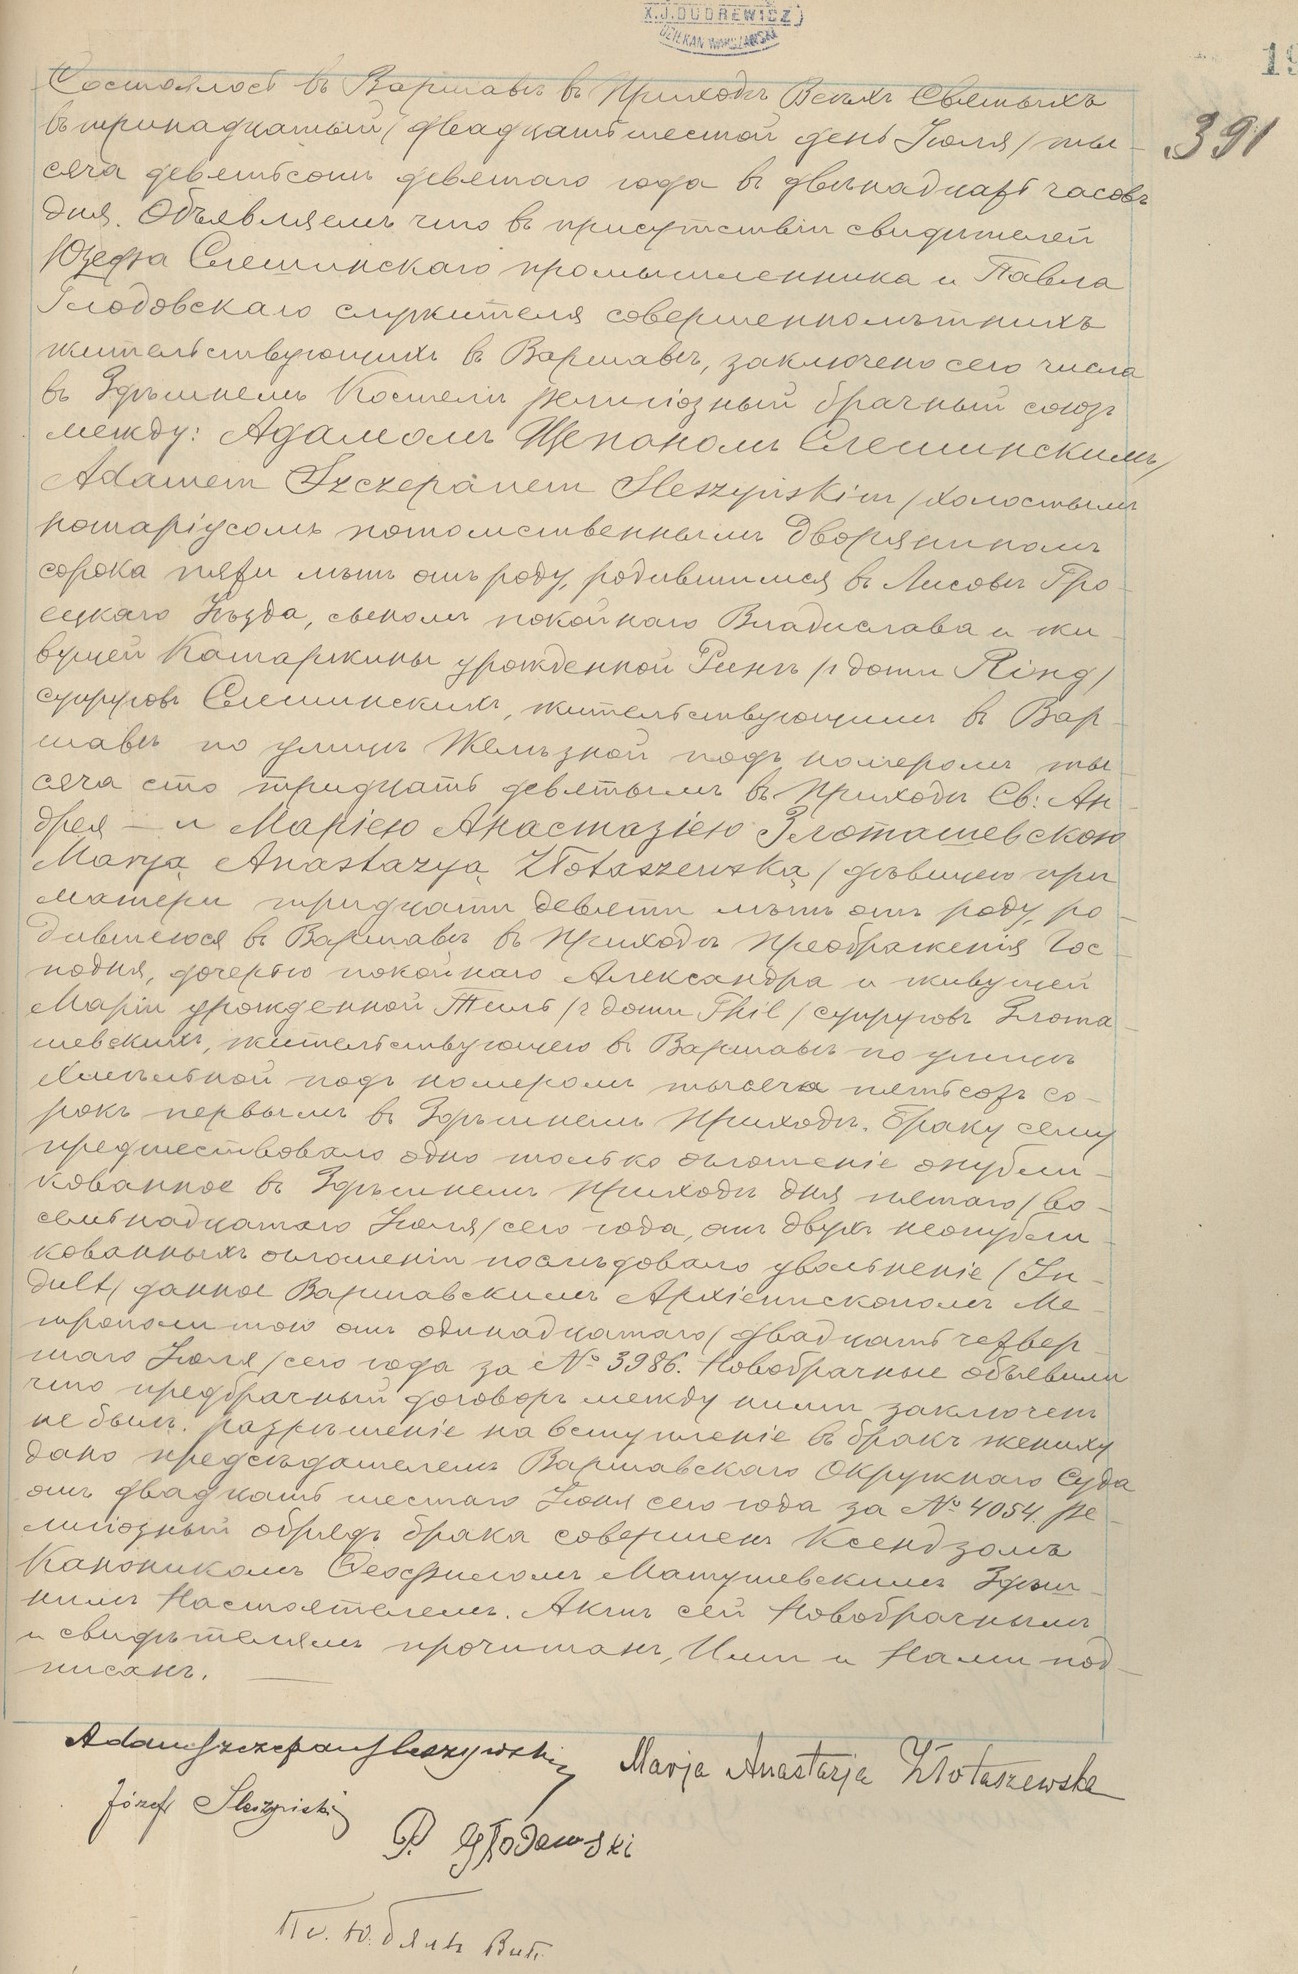 X. J. DUDREWICZ
DZIEKAN WARSZAWSKI
19
391
Состоялось въ Варшавѣ въ приходѣ Всѣхъ Святыхъ
въ тринадцатый / двадцать шестой день Іюля / ты-
сяча девятьсотъ девятаго года въ двѣнадцать часовъ
дня. Объявляемъ что въ присутствіи свидѣтелей
Юзефа Слешинскаго промышленника и Павла
Глодовскаго служителя совершеннолѣтнихъ
жительствующихъ въ Варшавѣ, заключено сего числа
въ Здѣшнемъ Костелѣ религіозный брачный союзъ
между: Адамомъ Щепаномъ Слешинскимъ /
Adamem Szczepanem Sleszyńskim / холостымъ
нотаріусомъ потомственнымъ дворяниномъ
сорока пяти лѣтъ отъ роду, родившимся въ Лисовѣ Гро-
ецкаго Уѣзда, сыномъ покойнаго Владислава и жи-
вущей Катаржины урожденной Рингъ / z domu Ring /
супруговъ Слешинскихъ, жительствующимъ въ Вар-
шавѣ по улицѣ Желѣзной подъ номеромъ ты-
сяча сто тридцать девятымъ въ приходѣ Св: Ан-
дрея — и Маріею Анастазіею Злоташевскою
Maryą Anastazyą Złotaszewską / дѣвицею при
матери тридцати девяти лѣтъ отъ роду, ро-
дившеюся въ Варшавѣ въ приходѣ Преображенія Гос-
подня, дочерью покойнаго Александра и живущей
Маріи урожденной Тиль / z domu Thil / супруговъ Злота-
шевскихъ, жительствующею въ Варшавѣ по улицѣ
Хмѣльной подъ номеромъ тысяча пятьсотъ со-
рокъ первымъ въ Здѣшнемъ приходѣ. Браку сему
предшествовало одно только оглашеніе опубли-
кованное въ Здѣшнемъ приходѣ дня пятаго / во-
семнадцатаго Іюля / сего года, отъ двухъ неопубли-
кованныхъ оглашеній послѣдовало увольненіе / In-
dult / данное Варшавскимъ Архіепископомъ Ме-
трополитою отъ одинадцатаго / двадцать четвер-
таго Іюля / сего года за № 3986. Новобрачные объявили
что предбрачный договоръ между ними заключенъ
не былъ. Разрѣшеніе на вступленіе въ бракъ жениху
дано предсѣдателемъ Варшавскаго Окружнаго Суда
отъ двадцать шестаго Іюня сего года за № 4054. Ре-
лигіозный обрядъ брака совершенъ Ксендзомъ
Каноникомъ Теофиломъ Матушевскимъ Здѣш-
нимъ Настоятелемъ. Актъ сей Новобрачнымъ
и свидѣтелямъ прочитанъ, Ими и Нами под-
писанъ.
Adam Szczepan Sleszyński
Marja Anastazja Złotaszewska
Józef Sleszyński
P. Głodowski